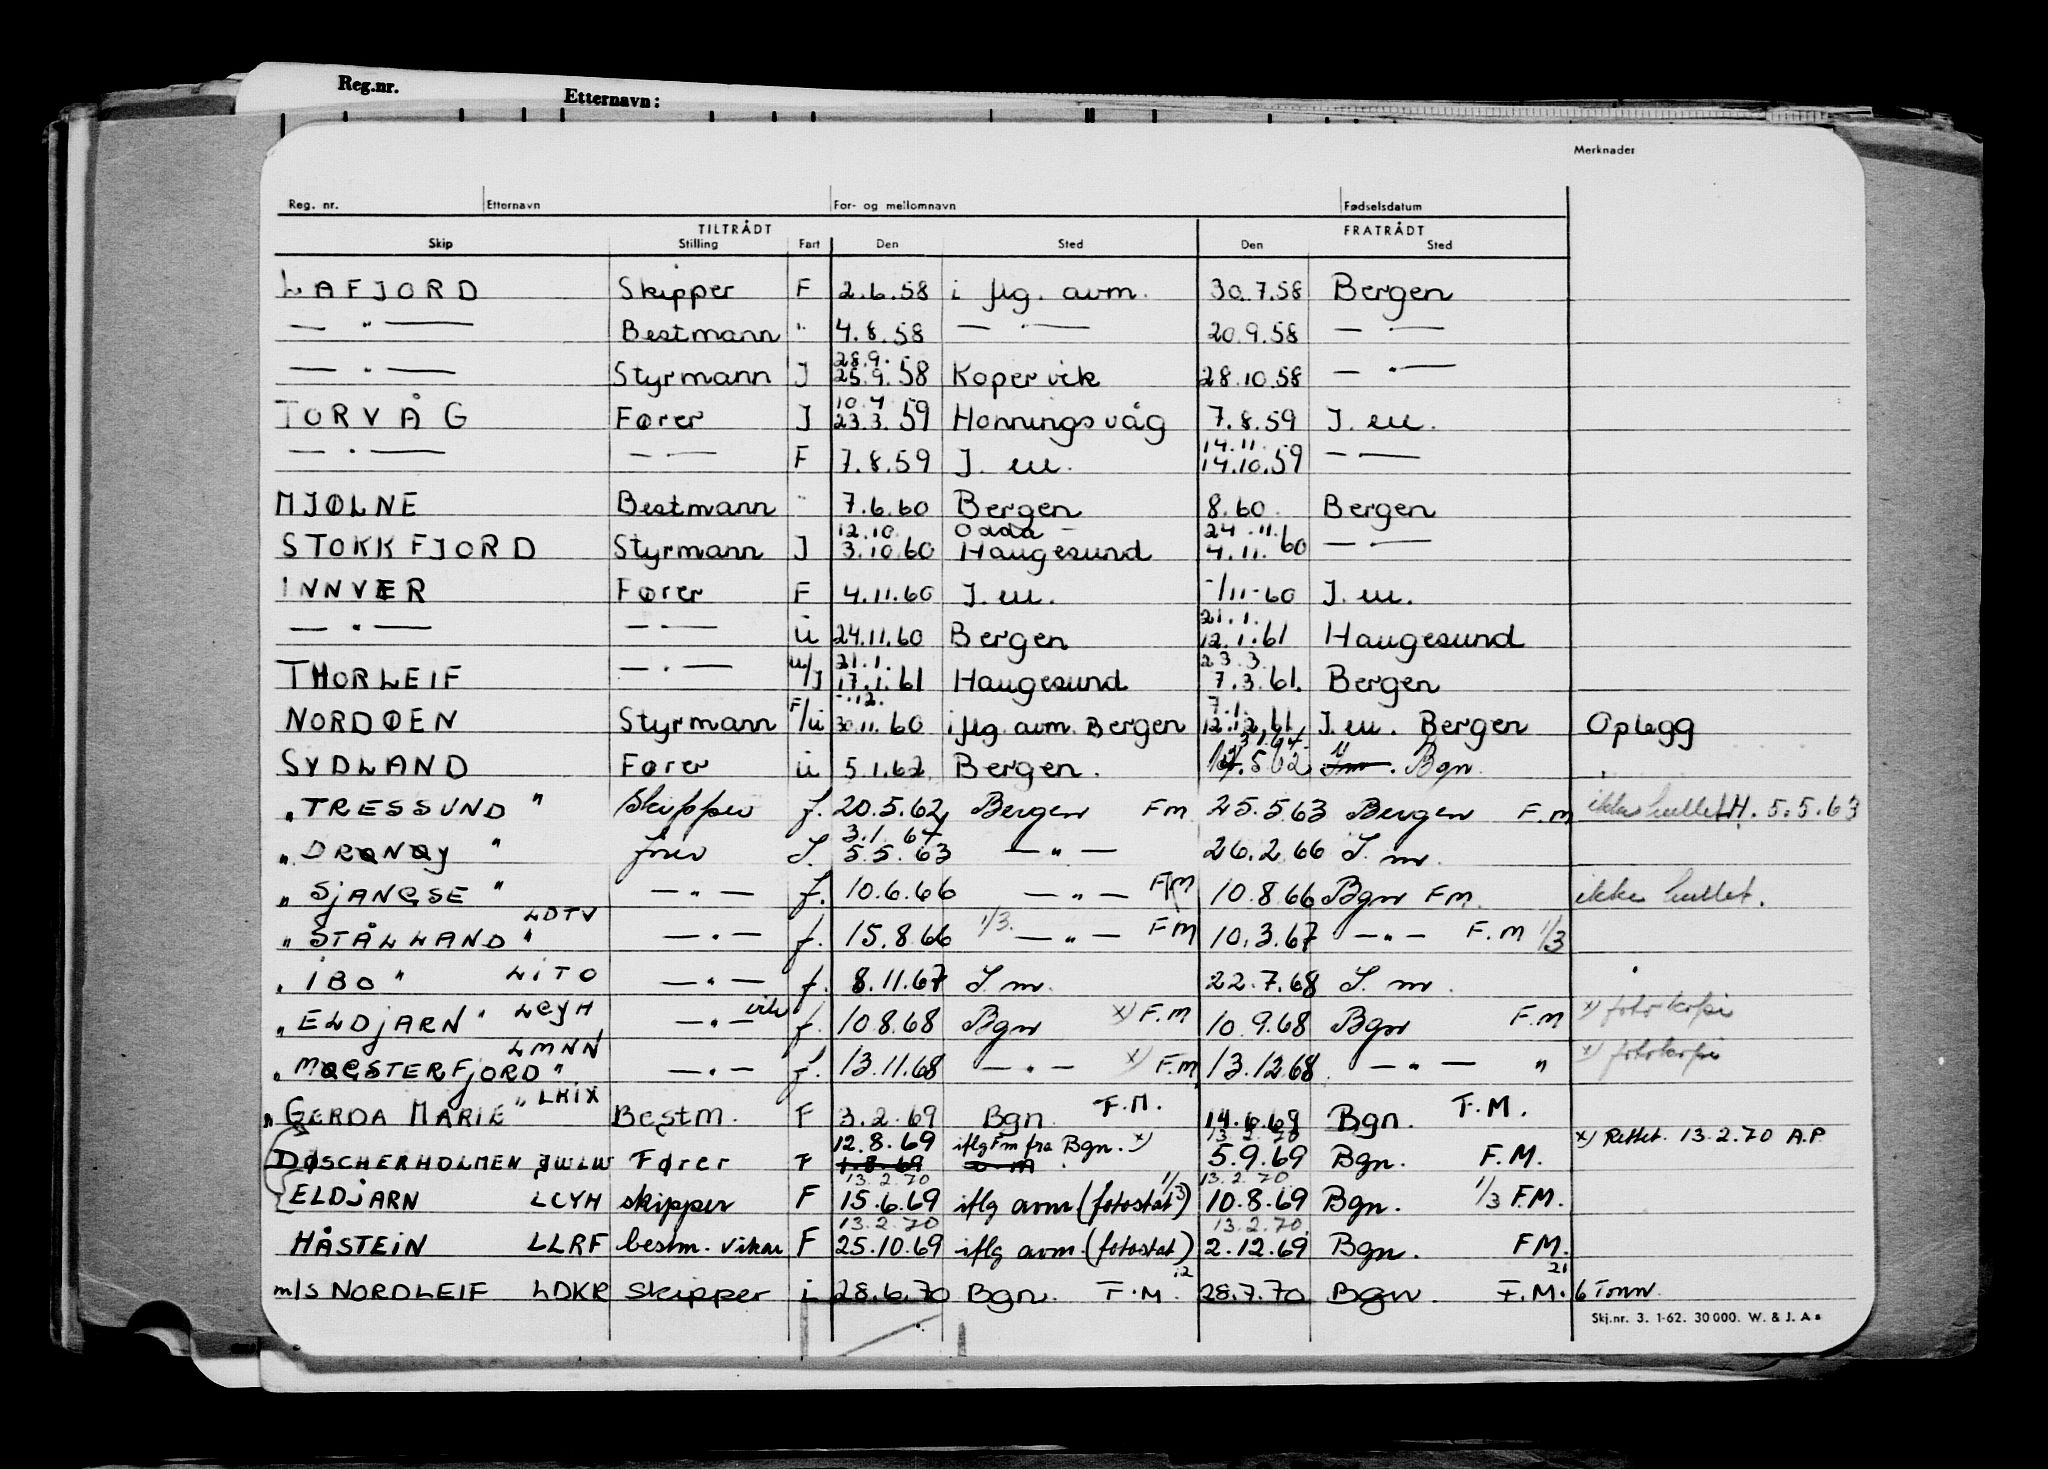 Reg.nr. Etternavn:
Merknader
Reg. nr. Etternavn For- og mellomnavn Fødselsdatum
TILTRÅDT FRATRÅDT
Skip Stilling Fart Den Sted Den Sted
LAFJORD Skipper F 2.6.58 i flg. avm. 30.7.58 Bergen
— " — Bestmann " 4.8.58 — " — 20.9.58 — " —
28.9.
— " — Styrmann J 25.9.58 Kopervik 28.10.58 — " —
10.4
TORVÅG Fører J 23.3.59 Honningsvåg 7.8.59 J. m.
14.11.
— " — — " — F 7.8.59 J. m. 14.10.59 — " —
MJØLNE Bestmann " 7.6.60 Bergen 8.60. Bergen
12.10. Odda — 24.11.
STOKKFJORD Styrmann J 3.10.60 Haugesund 4.11.60 — " —
INNVÆR Fører F 4.11.60 J. m. -/11-60 J. m.
21.1.
— " — — " — u 24.11.60 Bergen 12.1.61 Haugesund
21.1. 23.3.
THORLEIF — " — u/J 17.1.61 Haugesund 7.3.61. Bergen
-.12. 7.1.
NORDØEN Styrmann F/u 30.11.60 i flg. avm. Bergen 12.12.61 J. m. Bergen Oplegg
SYDLAND Fører u 5.1.62 Bergen. Bgn.
"TRESSUND" Skipper f. 20.5.62 Bergen FM 25.5.63 Bergen F.M ikke hullet H. 5.5.63
3.1.64
"DRØNØY" fører J. 5.5.63 — " — 26.2.66 J. m.
"SJANGSE" — " — f. 10.6.66 — " — FM 10.8.66 Bgn FM. ikke hullet.
"STÅLLAND" LDTV — " — f. 15.8.66 1/3. — " — FM 10.3.67 — " — F.M 1/3
"IBO" LITO — " — f. 8.11.67 J. m. 22.7.68 J. m.
"ELDJARN" LCYH — " — vik f. 10.8.68 Bgn x) F.M 10.9.68 Bgn F.M x) fotokopi
"MØGSTERFJORD" LMNN — " — f. 13.11.68 — " — x) F.M. 13.12.68. — " — " x) fotokopi
"GERDA MARIE" LHIX Bestm. F 3.2.69 Bgn. F.M. 14.6.69 Bgn. F.M.
12.8.69 iflg Fm fra Bgn. x) 13.2.70 x) Rettet. 13.2.70 A.P.
DØSCHERHOLMEN JWLW Fører F 1.8.69 5.9.69 Bgn. F.M.
13.2.70 13.2.70
ELDJARN LCYH skipper F 15.6.69 iflg avm (fotostat) 1/3 10.8.69 Bgn. 1/3 F.M.
13.2.70 13.2.70.
HÅSTEIN LLRF bestm. vikar F 25.10.69 iflg avm. (fotostat) 2.12.69 Bgn. FM.
12 21
m/s NORDLEIF LDKR Skipper i 28.6.70 Bgn. F.M. 28.7.70 Bgn. F.M. 6 Tonn.
Skj.nr. 3. 1-62. 30 000. W. & J. A s